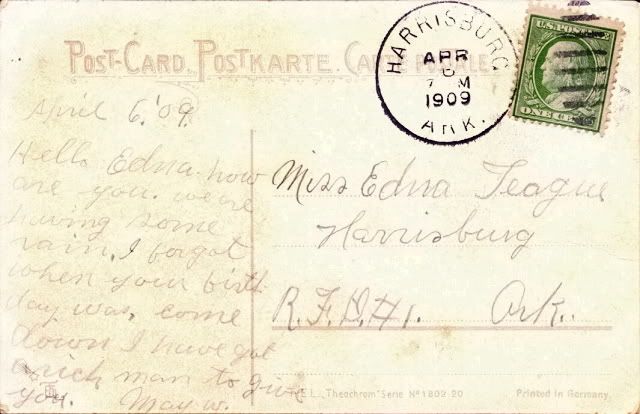 POST-CARD. POSTKARTE. CARTE POSTALE.
HARRISBURG
APR
6
7 M
1909
ARK.
U.S. POSTAGE
ONE CENT
April 6, '09.
Hello Edna how
are you. we are
having some
rain, I forgot
when your birth
day was, come
down I have got
a rich man to give
you. May W.
Miss Edna Teague
Harrisburg
R.F.D.#1. Ark.
E.L. "Theochrom" Serie Nº 1802-20
Printed in Germany.